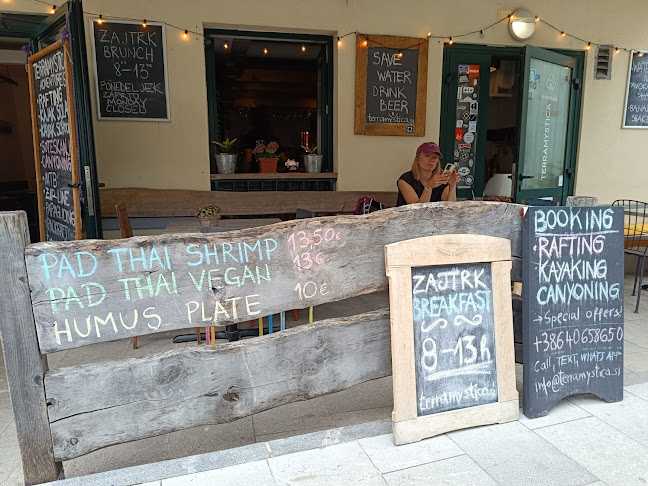 ZAJTRK
BRUNCH
8-13h
PONEDELJEK
ZAPRTO
MONDAY
CLOSED
SAVE
WATER
DRINK
BEER
terramystica.si
TERRAMYSTICA
TERRAMYSTICA
ADVENTURES
RAFTING
KAJAK
SOLA
SOTESKANJE
CANYONING
MTB
ZIP-LINE
PAD THAI SHRIMP 13,50€
PAD THAI VEGAN 13€
HUMUS PLATE 10€
ZAJTRK
BREAKFAST
8-13h
terramystica.si
BOOKING
•RAFTING
•KAYAKING
CANYONING
→Special offers!
+38640658650
Call, TEXT, WHATS APP
info@terramystica.si